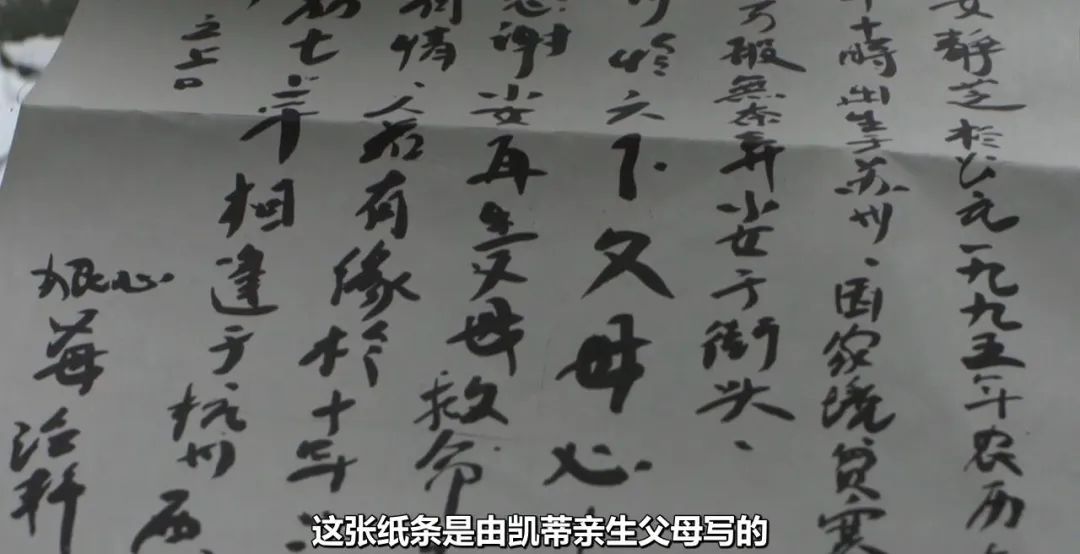 女靜芝於公元一九九五年农历
十時出生于苏州、因家境贫寒
万般無奈弃小女于街头、
怜天下父母心
感谢 再生父母救命
情、若有缘於十年
七 早相逢于杭州西
之上
狠心
这张纸条是由凯蒂亲生父母写的